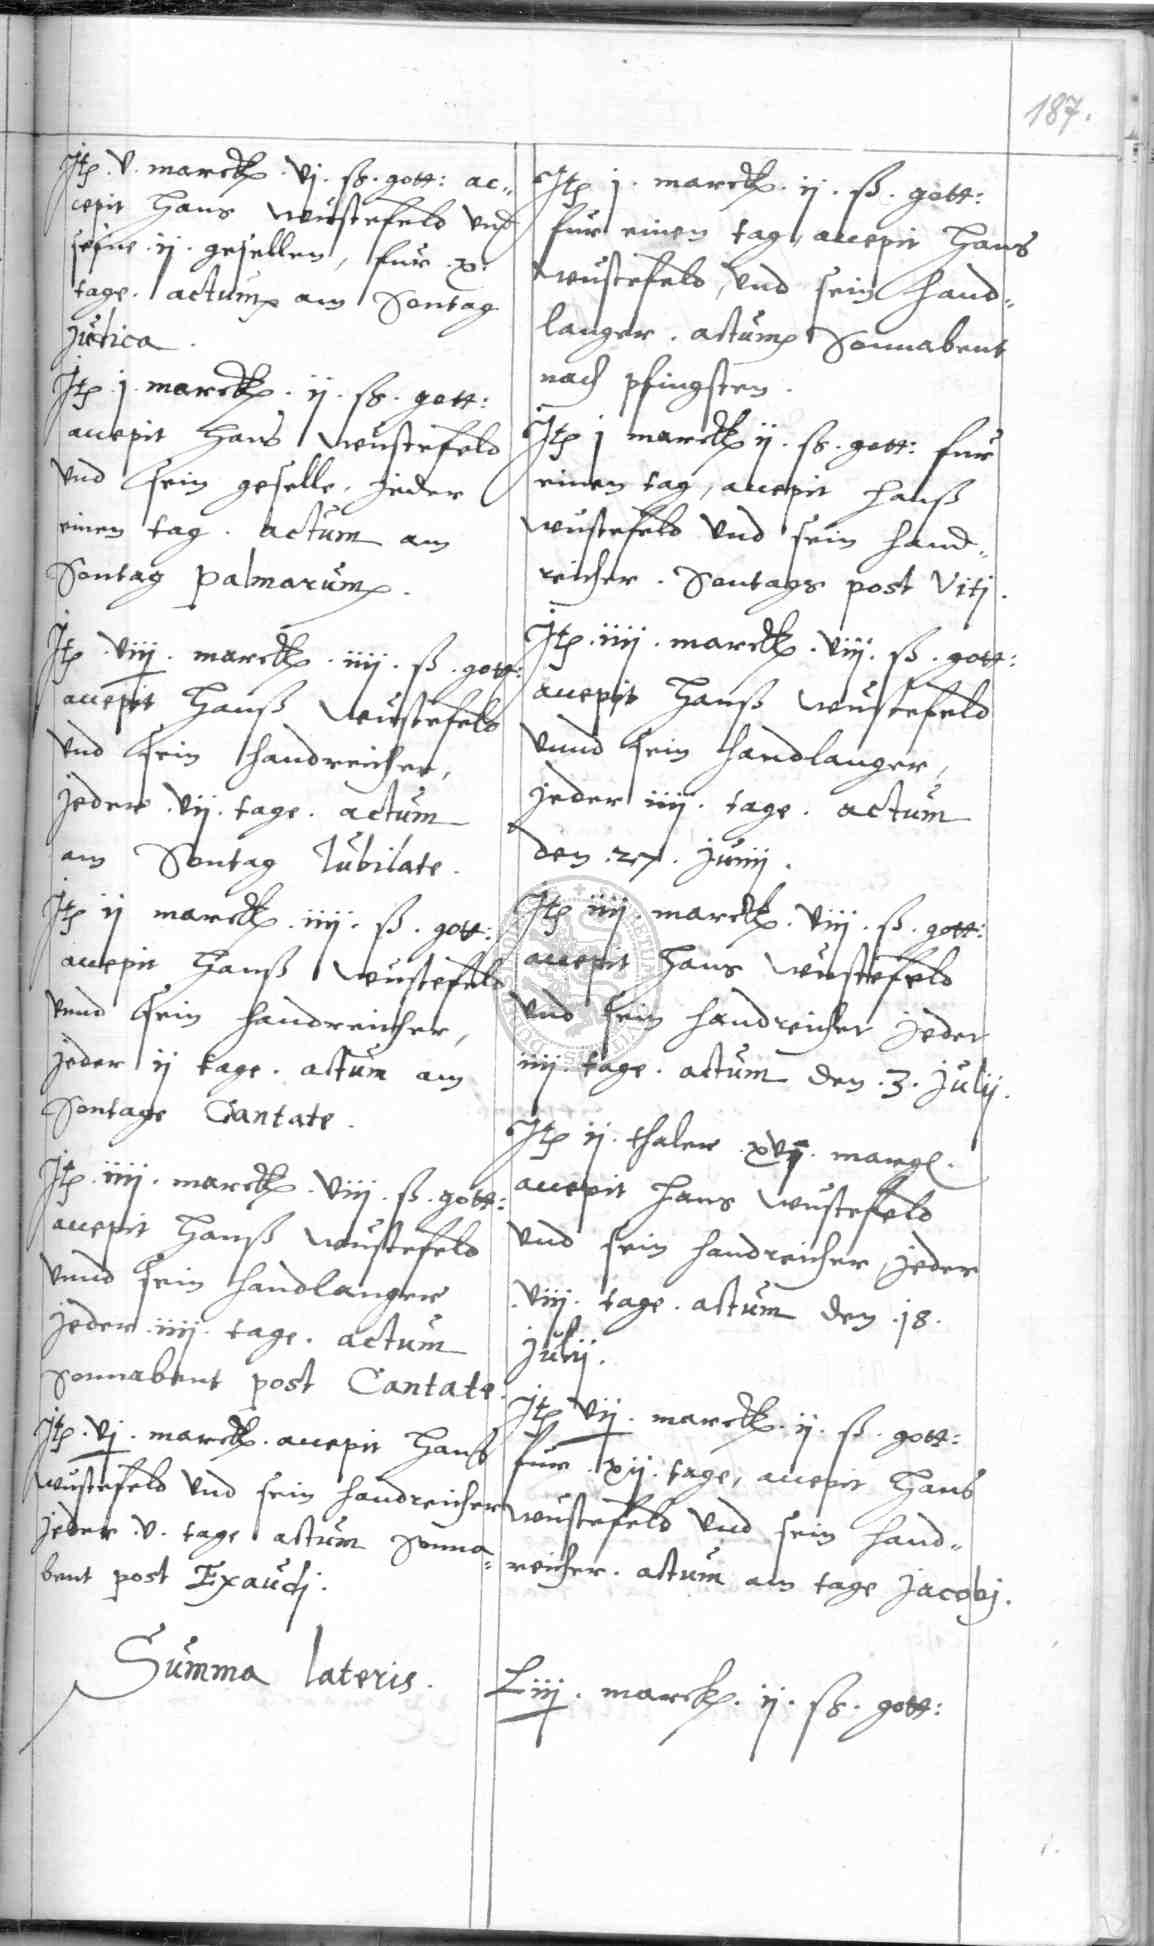 187.
Itẽ .v. marck .vj. ß. gott: ac„
cepit Hans wustefeld vnd
seine .ij. gesellen, fur .x.
tage. actum am Sontag
Judica.
Itẽ .j. marck. ij. ß. gott:
accepit Hans wustefeld
vnd sein geselle, jeder
einen tag. actum am
Sontag Palmarum.
Itẽ .viij. marck. iiij. ß. gott:
accepit Hanß wustefeld
vnd sein handreicher,
jeder .vij. tage. actum
am Sontag Jubilate.
Itẽ ij marck .iiij. ß. gott:
accepit Hanß wustefeld
vnnd sein handreicher,
jeder ij tage. actum am
Sontage Cantate.
Itẽ .iiij. marck. viij. ß. gott:
accepit Hanß wustefeld
vnnd sein handlanger
jeder .iiij. tage. actum
Sonnabent post Cantate.
Itẽ .vj. marck. accepit Hans
wustefeld vnd sein handreicher
jeder .v. tage actum Sonna„
bent post Exaudj.
Itẽ j. marck. ij. ß. gott:
fur einen tag, accepit Hans
wustefeld, vnd sein hand„
langer. actum Sonnabent
nach pfingsten.
Itẽ j marck ij. ß. gott: fur
einen tag, accepit Hanß
wustefeld vnd sein hand„
reicher. Sontags post Vitj.
Itẽ .iiij. marck .viij. ß. gott:
accepit Hanß wustefeld
vnnd sein handlanger,
jeder iiij. tage. actum
den .27. Junij.
Itẽ iiij. marck. viij. ß. gott:
accepit Hans wustefeld
vnd sein handreicher jeder
iiij. tage. actum den .3. Julij.
Itẽ ij. thaler .xvij. margl.
accepit Hans wustefeld
vnd sein handreicher, jeder
.viij. tage. actum den .18.
Julij.
Itẽ vij. marck. ij. ß. gott:
fur .xij. tage, accepit Hans
wustefeld vnd sein hand„
reicher. actum am tage Jacobj.
Summa lateris. Liij. marck. ij. ß. gott: